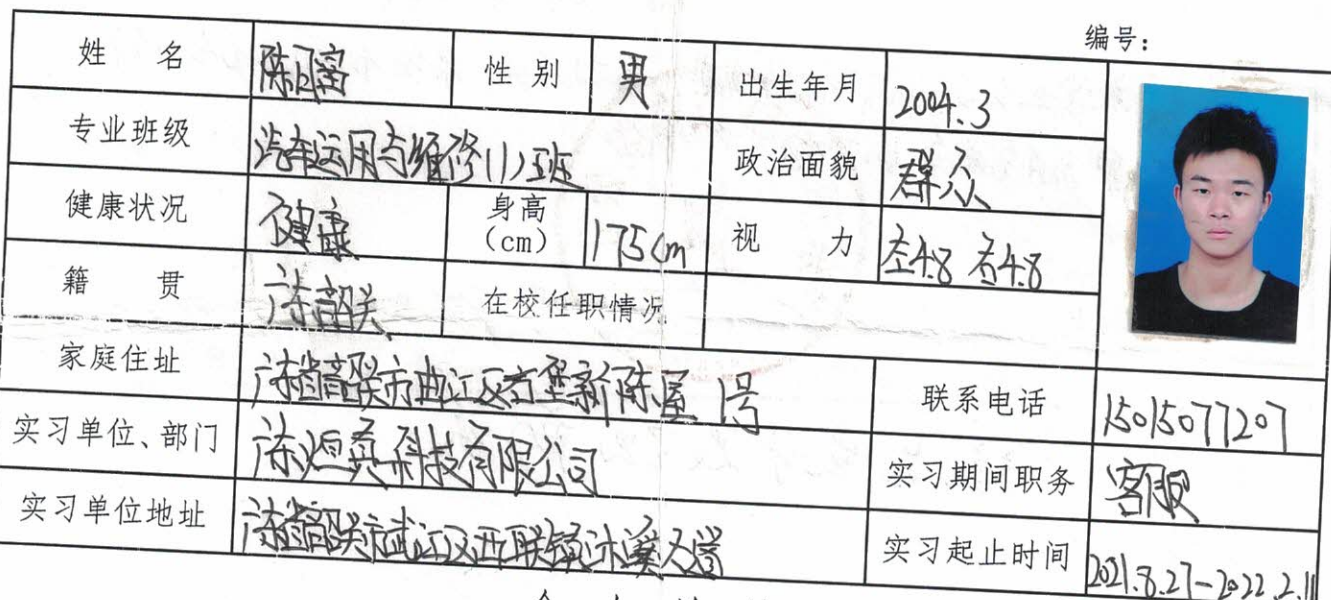 编号：
姓 名 陈 富 性 别 男 出生年月 2004.3
专业班级 汽车运用与维修(1)班 政治面貌 群众
健康状况 健康 身高（cm） 175cm 视 力 左4.8 右4.8
籍 贯 广东韶关 在校任职情况
家庭住址 广东省韶关市曲江区 新陈屋1号 联系电话 15015077207
实习单位、部门 广东 科技有限公司 实习期间职务 客服
实习单位地址 广东省韶关市武江区西联镇沐溪大道 实习起止时间 2021.8.27-2022.2.11